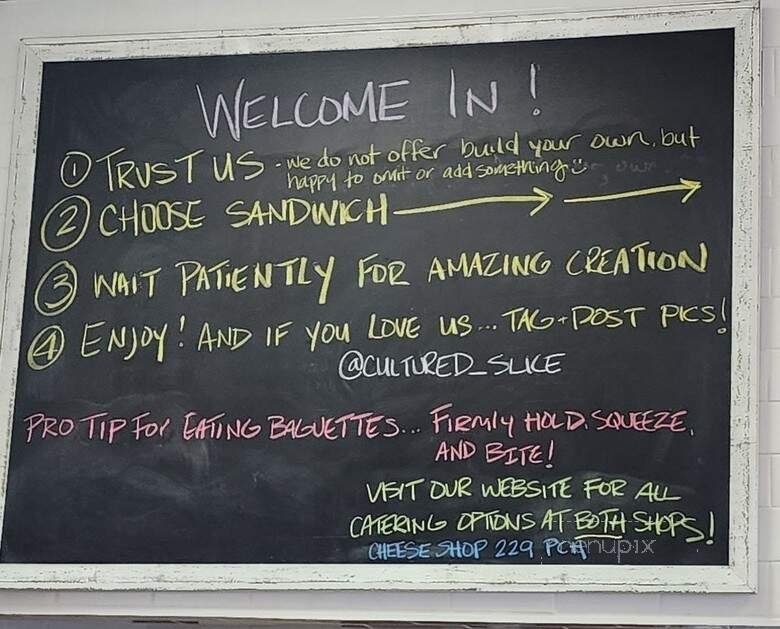 WELCOME IN!
① TRUST US - we do not offer build your own, but
happy to omit or add something
② CHOOSE SANDWICH
③ WAIT PATIENTLY FOR AMAZING CREATION
④ ENJOY! AND IF YOU LOVE US... TAG + POST PICS!
@CULTURED_SLICE
PRO TIP FOR EATING BAGUETTES... FIRMLY HOLD, SQUEEZE,
AND BITE!
VISIT OUR WEBSITE FOR ALL
CATERING OPTIONS AT BOTH SHOPS!
CHEESE SHOP 229 PCH
menupix